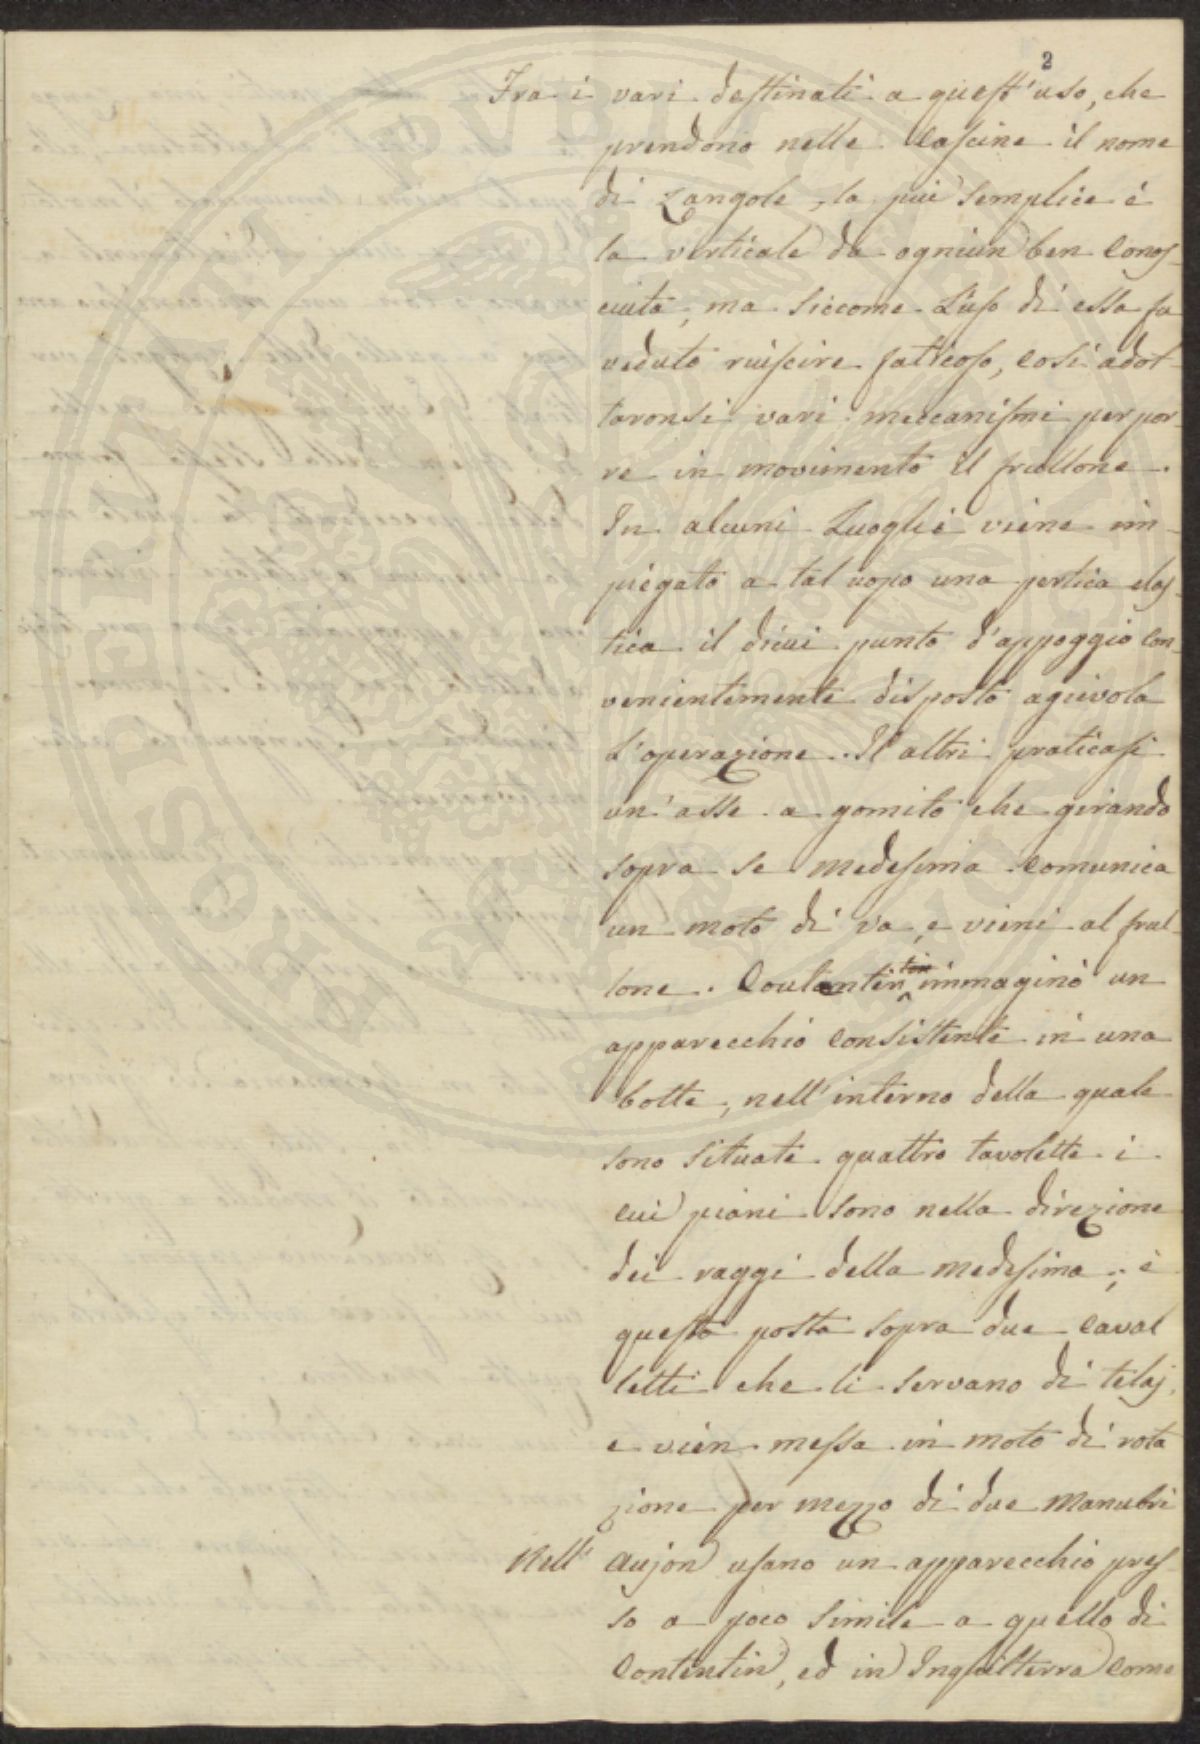 2
Fra i vari destinati a quest'uso, che
prendono nelle Cascine il nome
di zangole, la più semplice è
la verticale da ogniun ben Conos-
ciuta, ma siccome L'uso di essa fu
veduto riuscire faticoso, così adot-
taronsi vari meccanismi per por-
re in movimento il frullone.
In alcuni Luoghi viene im-
piegato a tal uopo una pertica elas-
tica il di cui punto d'appoggio con-
venientemente disposto agievola
L'operazione. In altri praticasi
un'asse a gomito che girando
sopra se medesima comunica
un moto di va, e vieni al frul-
lone. immaginò un
apparecchio Consistente in una
botte, nell'interno della quale
sono situate quattro tavolette i
cui piani sono nella direzione
dei raggi della medesima; è
questa posta sopra due Caval
letti che li servano di telaj,
e vien messa in moto di rota
zione per mezzo di due Manubri
Nell' Aujon usano un apparecchio pres-
so a poco simile a quello di
Contentin, ed in Inghilterra Come